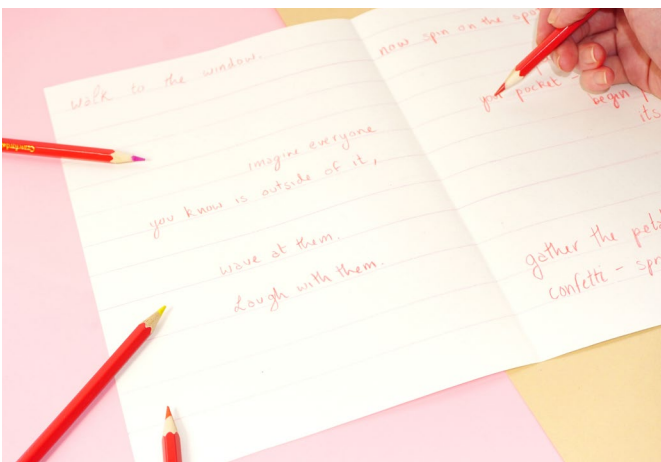 walk to the window.
imagine everyone
you know is outside of it,
wave at them.
Laugh with them.
now spin on the spo
you pocket -
begin
its
gather the peta
confetti - spr